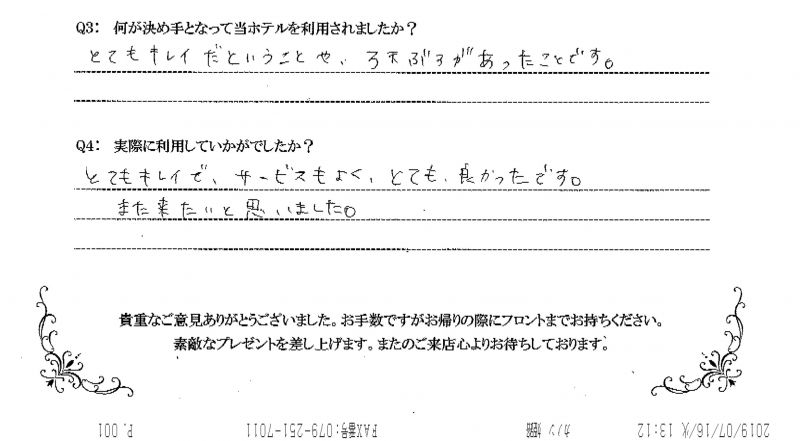 Q3: 何が決め手となって当ホテルを利用されましたか？
とてもキレイだということや、ろ天ぶろがあったことです。
Q4: 実際に利用していかがでしたか？
とてもキレイで、サービスもよく、とても、良かったです。
また来たいと思いました。
貴重なご意見ありがとうございました。お手数ですがお帰りの際にフロントまでお持ちください。
素敵なプレゼントを差し上げます。またのご来店心よりお待ちしております。
2019/07/16/火 13:12 カノン 姫路 FAX番号:079-251-7011 P. 001